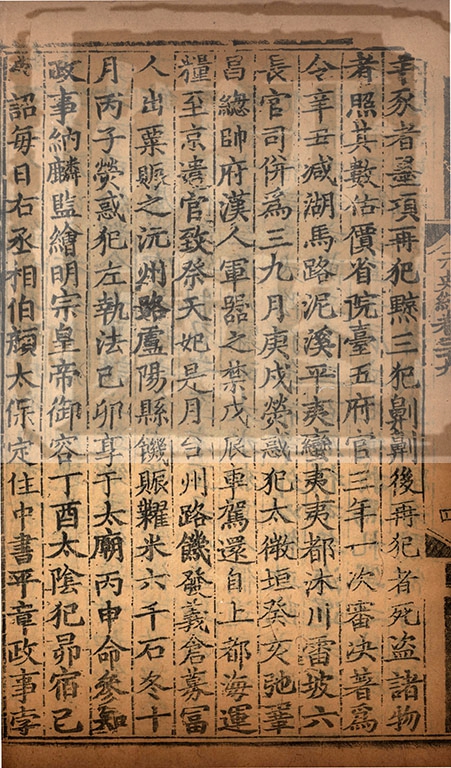 羊豕者墨項再犯黥三犯劓劓後再犯者死盜諸物
者照其數估價省院臺五府官三年一次審決著為
令辛丑减湖馬路泥溪平夷蠻夷夷都沐川雷坡六
長官司併為三九月庚戌熒惑犯太微垣癸亥弛鞏
昌總帥府漢人軍器之禁戊辰車駕還自上都海運
糧至京遣官致祭天妃是月台州路饑發義倉募富
人出粟賑之沅州路盧陽縣饑賑糶米六千石冬十
月丙子熒惑犯左執法己卯享于太廟丙申命參知
政事納麟監繪明宗皇帝御容丁酉太陰犯昴宿己
詔每日右丞相伯顏太保定住中書平章政事孛